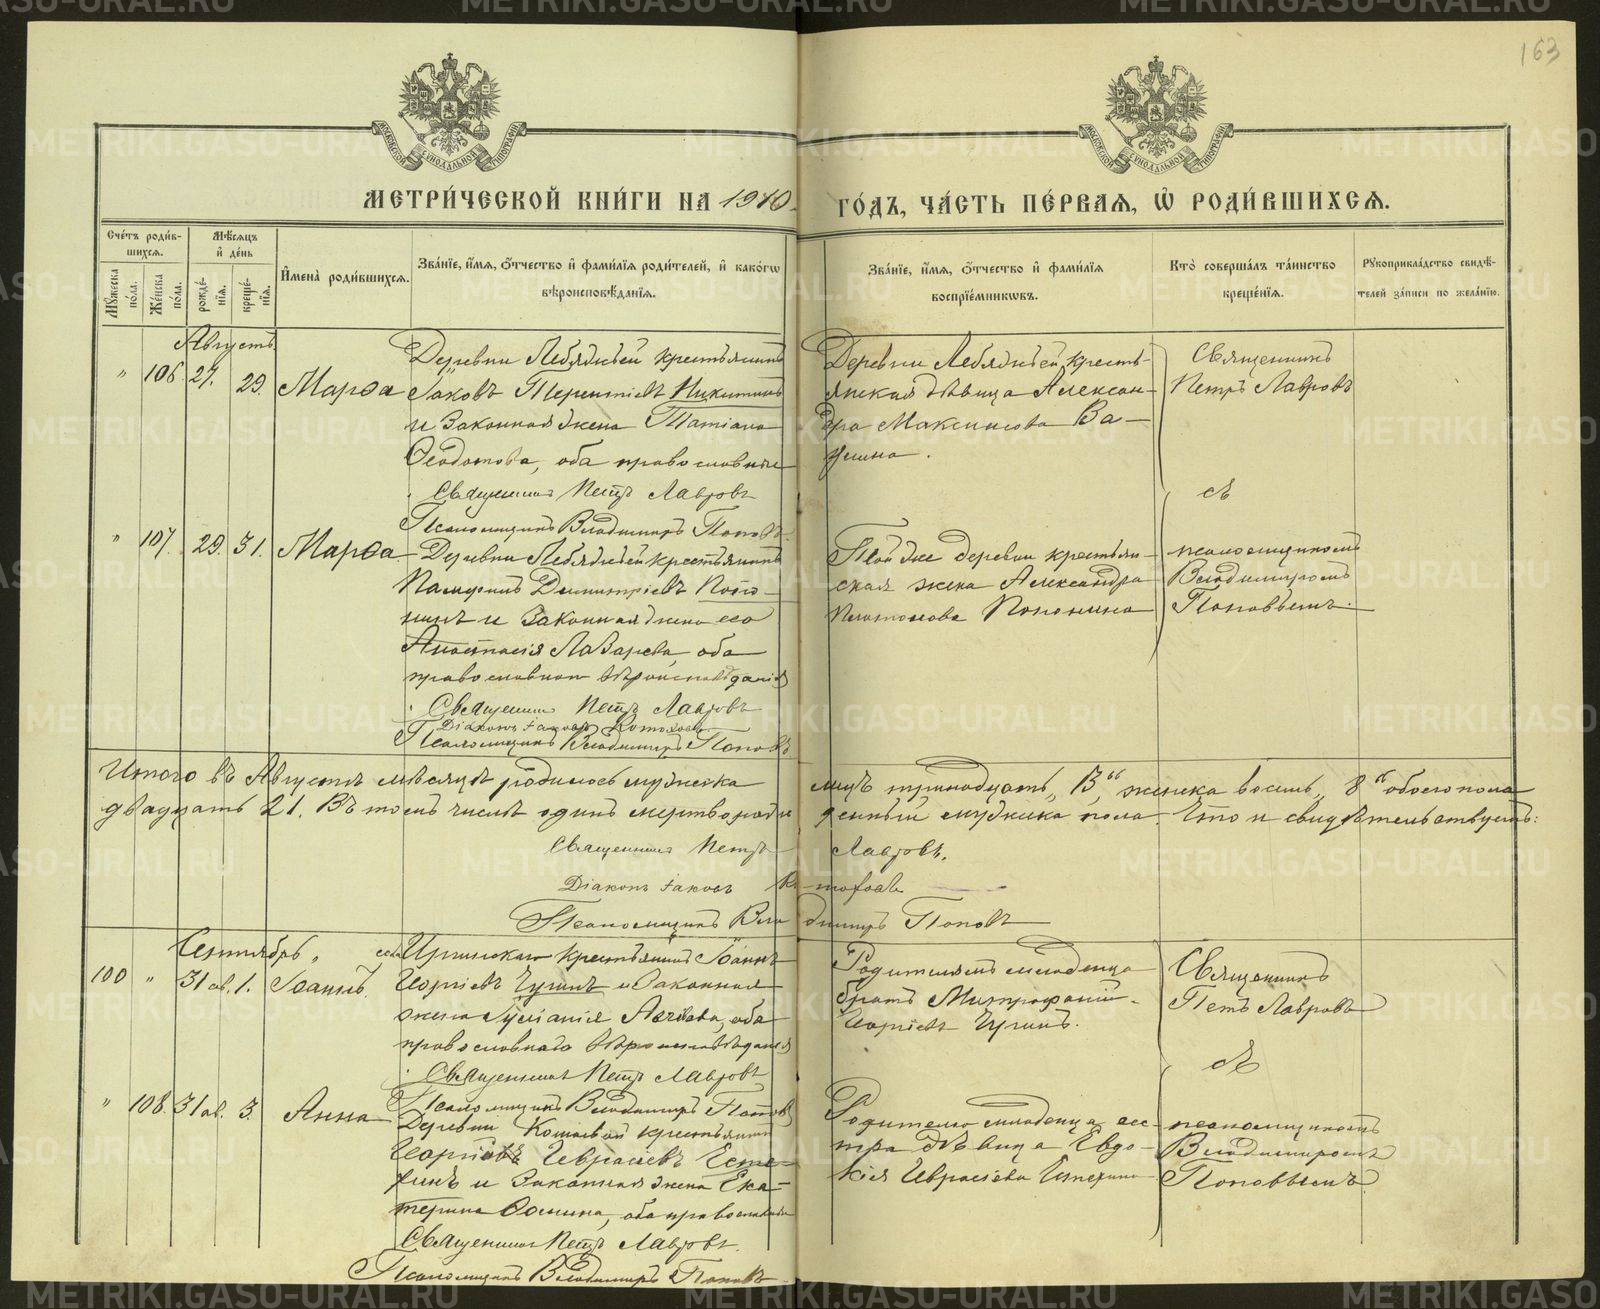 163
МОСКОВСКОЙ СѴНОДАЛЬНОЙ ТИПОГРАФІИ
МОСКОВСКОЙ СѴНОДАЛЬНОЙ ТИПОГРАФІИ
МЕТРИ́ЧЕСКОЙ КНИ́ГИ НА 1910 ГО́ДЪ, ЧА́СТЬ ПЕ́РВАѦ, Ѽ РОДИ́ВШИХСѦ.
Сче́тъ роди́в-
шихсѧ.
Мꙋ́жеска по́ла.
Же́нска по́ла.
Мѣ́сѧцъ и҆ де́нь
рожде́-
нїѧ.
креще́-
нїѧ.
И҆мена̀ роди́вшихсѧ.
Зва́нїе, и҆́мѧ, ѻ҆́тчество и҆ фами́лїѧ роди́телей, и҆ како́гѡ
вѣроисповѣ́данїѧ.
Зва́нїе, и҆́мѧ, ѻ҆́тчество и҆ фами́лїѧ
воспрїе́мникѡвъ.
Кто̀ соверша́лъ та́инство
креще́нїѧ.
Рꙋкоприкла́дство свидѣ́-
телей за́писи по жела́нїю.
Августъ
" 106 27. 29. Марѳа
Деревни Лебяжьей крестьянинъ
Іаковъ Терентіевъ Никитинъ
и законная жена Татіана
Ѳеодотова, оба православные
Священникъ Петръ Лавровъ
Псаломщикъ Владимиръ Поповъ
Деревни Лебяжьей кресть-
янская дѣвица Алексан-
дра Максимова Ва-
гина.
Священникъ
Петръ Лавровъ
съ
псаломщикомъ
Владимиромъ
Поповымъ.
" 107. 29. 31. Марѳа
Деревни Лебяжьей крестьянинъ
Памфилъ Димитріевъ Попо-
нинъ и законная жена его
Анастасія Лазарева, оба
православнаго вѣроисповѣданія
Священникъ Петръ Лавровъ
Діаконъ Іаковъ
Псаломщикъ Владимиръ Поповъ
Той же деревни крестьян-
ская жена Александра
Платонова Попонина
Итого въ Августѣ мѣсяцѣ родилось мужска
двадцать 21. Въ томъ числѣ одинъ мертворож
тринадцать "13", женска восемь "8" обоего пола
денный мужска пола. Что и свидѣтельствуютъ:
Священникъ Петръ Лавровъ.
Діаконъ Іаковъ
Псаломщикъ Владимиръ Поповъ
Сентябрь
100 " 31 ав. 1. Іоаннъ.
села Иргинскаго крестьянинъ Іоаннъ
Георгіевъ Чугинъ и законная
жена Іуліанія оба
православнаго вѣроисповѣданія
Священникъ Петръ Лавровъ
Псаломщикъ Владимиръ Поповъ
Родителямъ младенца
братъ Митрофаній
Георгіевъ Чугинъ.
Священникъ
Петръ Лавровъ
съ
псаломщикомъ
Владимиромъ
Поповымъ.
" 108. 31 ав. 3. Анна
Деревни крестьянинъ
Георгій Геврасіевъ
и законная жена Ека-
терина оба православные
Священникъ Петръ Лавровъ.
Псаломщикъ Владимиръ Поповъ
Родителю младенца сес-
тра дѣвица Евдо-
кія Геврасіева
METRIKI.GASO-URAL.RU